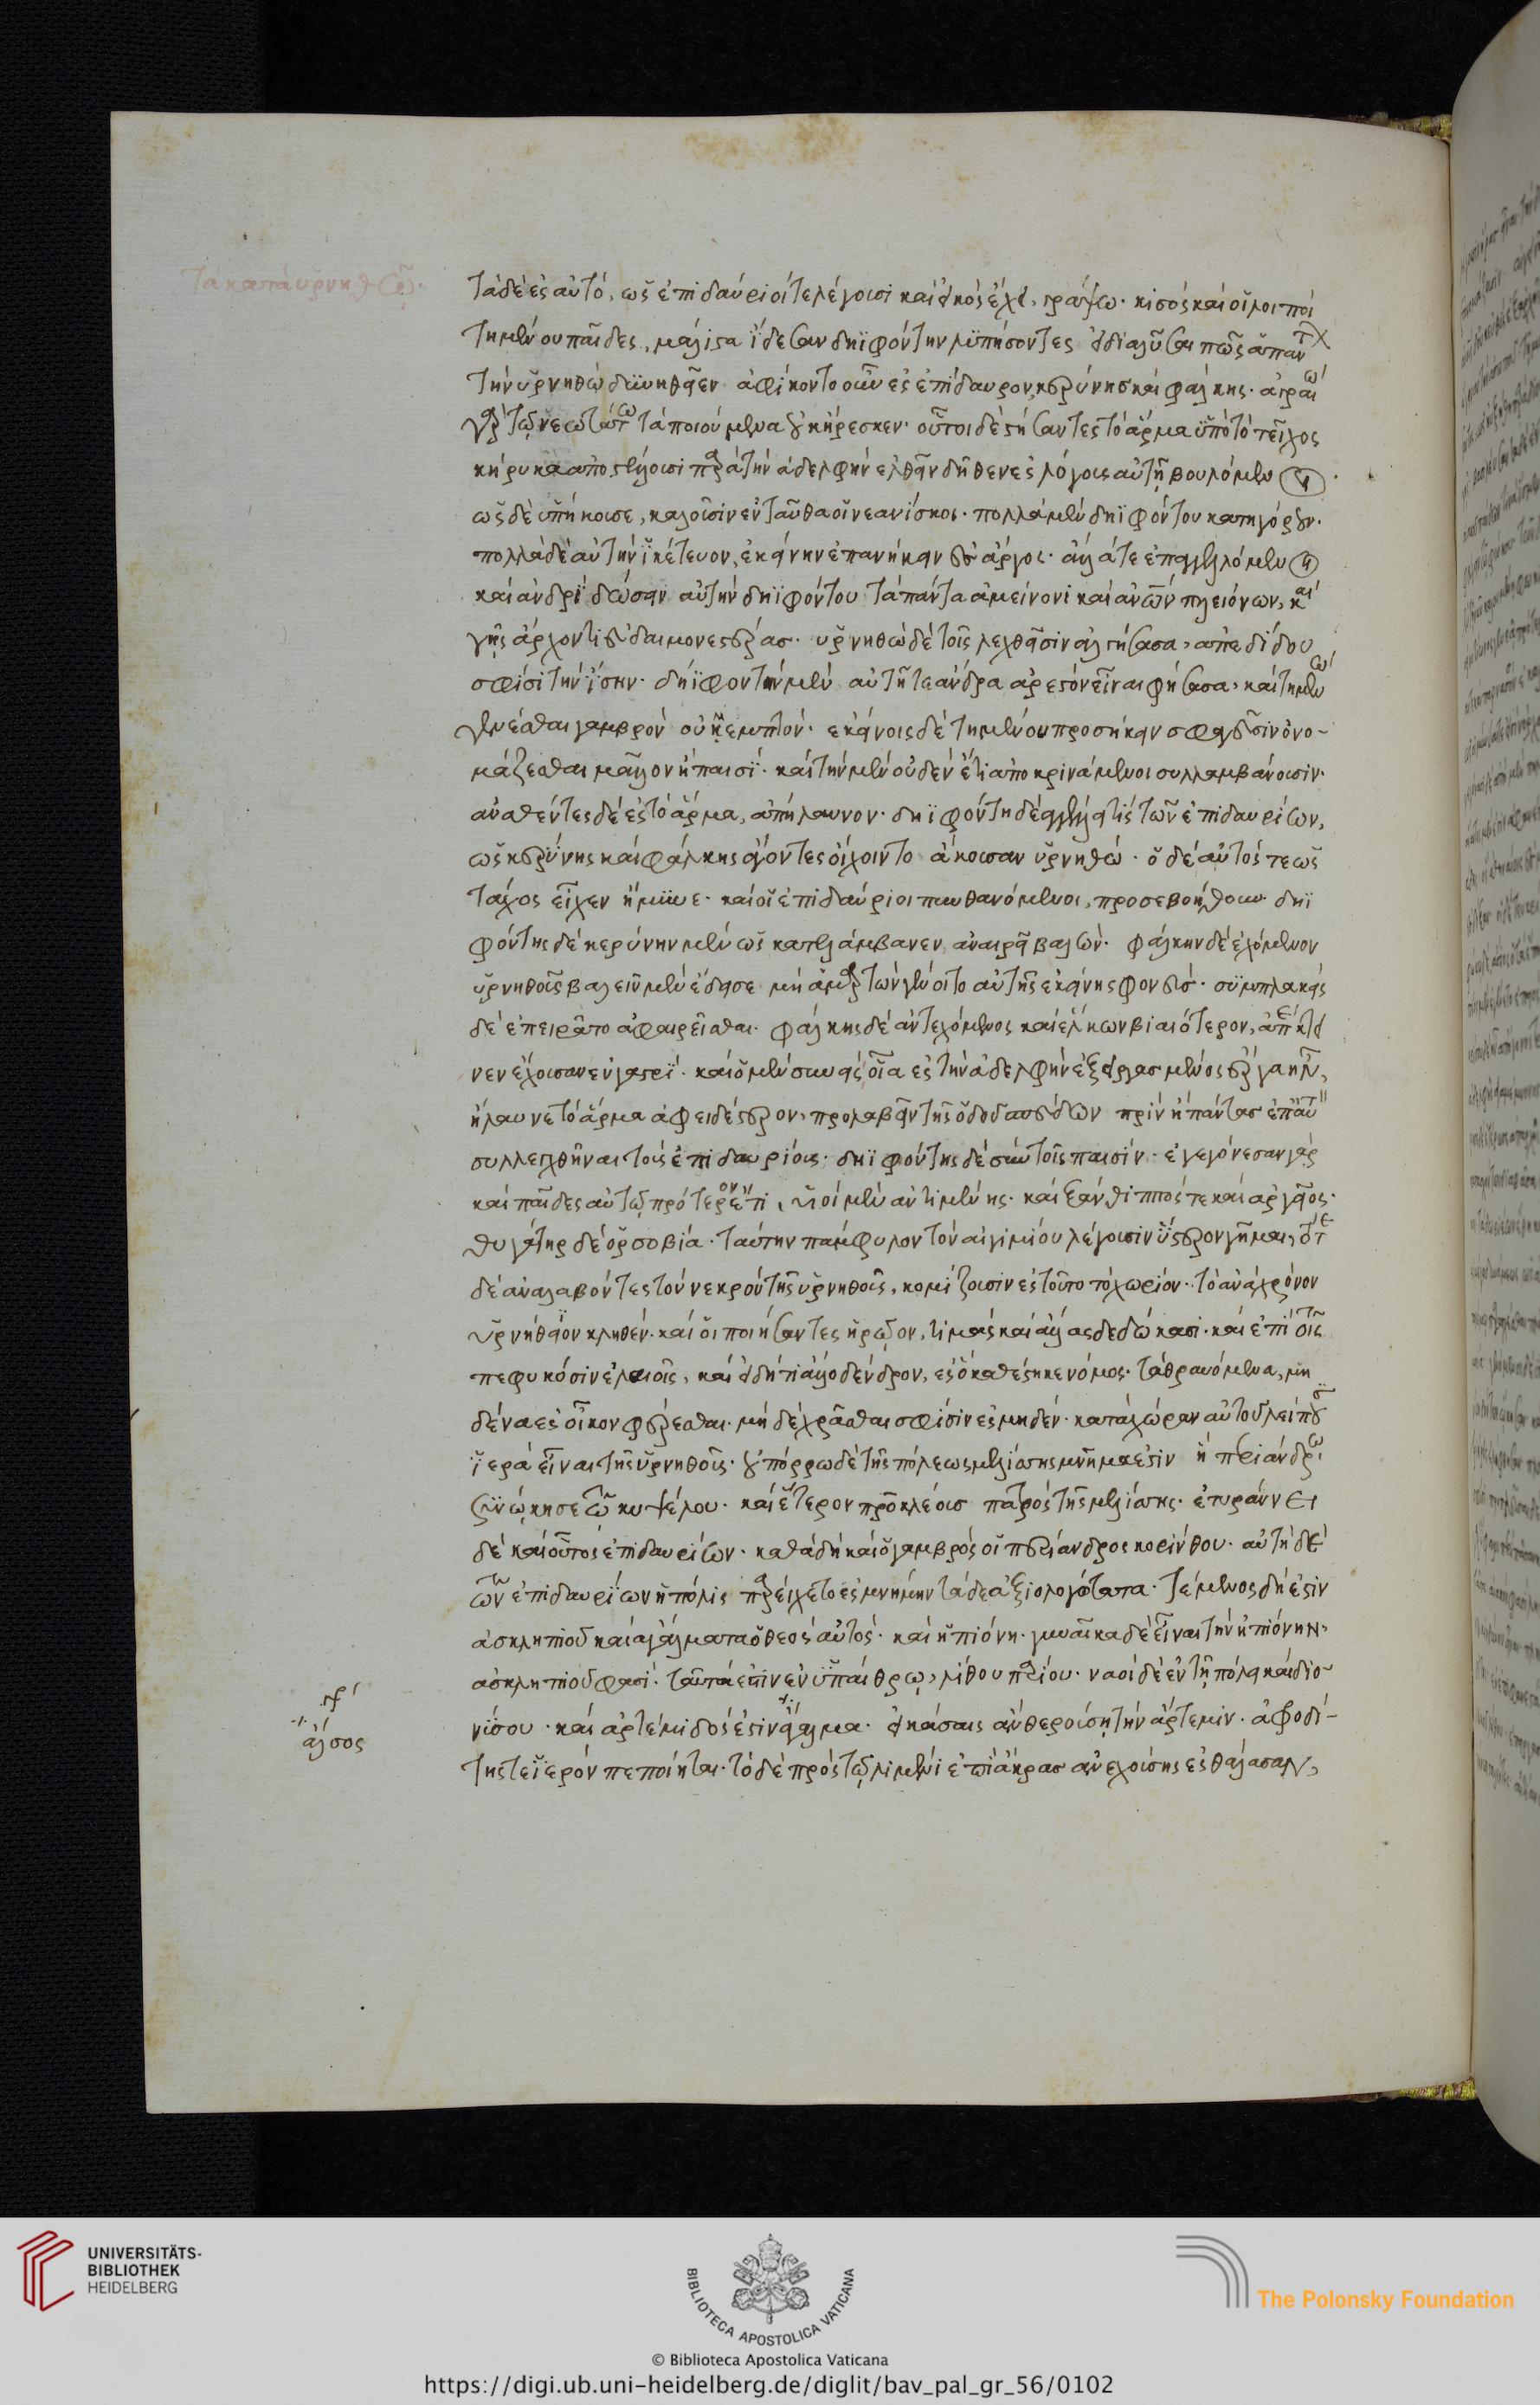 τὰ κατὰ ὕρνηθῶ.
τάδε ἐς αὐτό, ὡς ἐπιδαύριοί τε λέγουσι καὶ εἰκὸς ἔχει, γράψω· κισὸς καὶ οἱ λοιποὶ
τημένου παῖδες, μάλιστα ᾔδεσαν δηϊφόντην λυπήσοντες εἰ διαλῦσαι πως ἀπ' αὐτοῦ
τὴν ὑρνηθὼ δυνηθεῖεν ἀφίκοντο οὖν ἐς ἐπίδαυρον, κερύνης καὶ φάλκης· ἀγραίῳ
γὰρ τῷ νεωτάτῳ τὰ ποιούμενα οὐκ ἤρεσκεν· οὗτοι δὲ στήσαντες τὸ ἅρμα ὑπὸ τὸ τεῖχος
κήρυκα ἀποστέλλουσι παρὰ τὴν ἀδελφήν ἐλθεῖν δῆθεν ἐς λόγους αὐτῇ βουλόμενοι
ὡς δὲ ὑπήκουσε, καλοῦσιν ἐνταῦθα οἱ νεανίσκοι· πολλὰ μὲν δηϊφόντου κατηγόρουν·
πολλὰ δὲ αὐτὴν ἱκέτευον, ἐκείνην ἐπανήκειν ἐς ἄργος· ἄλλα τε ἐπαγγελλόμενοι
καὶ ἀνδρὶ δώσειν αὐτὴν δηϊφόντου τὰ πάντα ἀμείνονι καὶ ἀνθρώπων πλειόνων, καὶ
γῆς ἄρχοντι εὐδαιμονεστέρας· ὑρνηθὼ δὲ τοῖς λεχθεῖσιν ἀλγήσασα, ἀπεδίδου
σφίσι τὴν ἴσην· δηϊφόντην μὲν αὑτῇ τε ἄνδρα ἀρεστὸν εἶναι φήσασα, καὶ τημένῳ
γενέσθαι γαμβρὸν οὐ μεμπτόν· ἐκείνοις δὲ τημένου προσήκειν σφαγεῦσιν ὀνο-
μάζεσθαι μᾶλλον ἢ παισί· καὶ τὴν μὲν οὐδὲν ἔτι ἀποκρινάμενοι συλλαμβάνουσιν·
ἀναθέντες δὲ ἐς τὸ ἅρμα, ἀπήλαυνον· δηϊφόντῃ δὲ ἀγγέλλει τὶς τῶν ἐπιδαυρίων,
ὡς κερύνης καὶ φάλκης ἄγοντες οἴχοιντο ἄκουσαν ὑρνηθώ· ὁ δὲ αὐτός τε ὡς
τάχος εἶχεν ἤμυνε· καὶ οἱ ἐπιδαύριοι πυνθανόμενοι, προσεβοήθουν· δηϊ
φόντης δὲ κερύνην μὲν ὡς κατελάμβανεν, ἀναιρεῖ βαλών· φάλκην δὲ ἐχόμενον
ὑρνηθοῦς βαλεῖν μὲν ἔδεισε μὴ ἁμαρτὼν γένοιτο αὐτῆς ἐκείνης φονεύς· συμπλακεὶς
δὲ ἐπειρᾶτο ἀφαιρεῖσθαι· φάλκης δὲ ἀντεχόμενος καὶ ἕλκων βιαιότερον, ἀπέκτει
νεν ἔχουσαν ἐν γαστρί· καὶ ὁ μὲν συνεὶς οἷα ἐς τὴν ἀδελφὴν ἐξειργασμένος ἔργα ἦν,
ἤλαυνε τὸ ἅρμα ἀφειδέστερον, προλαβεῖν τῆς ὁδοῦ σπεύδων πρὶν ἢ πάντας ἐπ' αὐτὸν
συλλεχθῆναι τοὺς ἐπιδαυρίους· δηϊφόντης δὲ σὺν τοῖς παισίν· ἐγεγόνεσαν γὰρ
καὶ παῖδες αὐτῷ πρότερον ἔτι, υἱοὶ μὲν ἀντιμένης· καὶ ξάνθιππός τε καὶ ἀργεῖος·
θυγάτηρ δὲ ὀρσοβία· ταύτην πάμφυλον τὸν αἰγιμίου λέγουσιν ὕστερον γῆμαι, τότε
δὲ ἀναλαβόντες τὸν νεκρὸν τῆς ὑρνηθοῦς, κομίζουσιν ἐς τοῦτο τὸ χωρίον· τὸ ἀνὰ χρόνον
ὑρνήθιον κληθέν· καὶ οἱ ποιήσαντες ἡρῷον, τιμὰς καὶ ἄλλας δεδώκασι· καὶ ἐπὶ τοῖς
πεφυκόσιν ἐλαίοις, καὶ εἰ δή τι ἄλλο δένδρον, ἐς ὃ καθέστηκε νόμος· τὰ θραυόμενα, μη
δένα ἐς οἶκον φέρεσθαι· μὴ δὲ χρᾶσθαι σφίσιν ἐς μηδέν· κατὰ χώραν αὐτοῦ λείπουσι
ἱερὰ εἶναι τῆς ὑρνηθοῦς· οὐ πόρρω δὲ τῆς πόλεως μελίσσης μνῆμά ἐστιν ἣ περιάνδρῳ
ξυνῴκησε τῷ κυψέλου· καὶ ἕτερον προκλέους πατρὸς τῆς μελίσσης· ἐτυράννει
δὲ καὶ οὗτος ἐπιδαυρίων· καθὰ δὴ καὶ ὁ γαμβρός οἱ περίανδρος κορίνθου· αὐτὴ δὲ
τῶν ἐπιδαυρίων ἡ πόλις παρείχετο ἐς μνήμην τάδε ἀξιολογώτατα· τέμενος δή ἐστιν
ἀσκληπιοῦ καὶ ἀγάλματα ὁ θεὸς αὐτός· καὶ ἠπιόνη· γυναῖκα δὲ εἶναι τὴν ἠπιόνην,
ἀσκληπιοῦ φασί· ταῦτά ἐστιν ἐν ὑπαίθρῳ, λίθου παρίου· ναοὶ δὲ ἐν τῇ πόλει καὶ διο-
νύσου· καὶ ἀρτέμιδός ἐστιν ἄγαλμα· εἰκάσαις ἂν θηρευούσῃ τὴν ἄρτεμιν· ἀφροδί-
γρ΄
ἄλσος
της τε ἱερὸν πεποίηται· τὸ δὲ πρὸς τῷ λιμένι ἐπὶ ἄκρας ἀνεχούσης ἐς θάλασσαν,
UNIVERSITÄTS-
BIBLIOTHEK
HEIDELBERG
BIBLIOTECA APOSTOLICA VATICANA
The Polonsky Foundation
© Biblioteca Apostolica Vaticana
https://digi.ub.uni-heidelberg.de/diglit/bav_pal_gr_56/0102